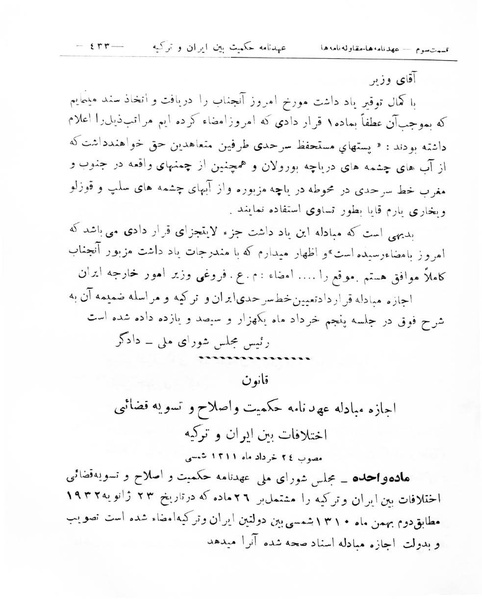 قسمت سوم — عهدنامه‌ها، مقاوله‌نامه‌ها عهدنامه حکمیت بین ایران و ترکیه —۴۳۳—
آقای وزیر
با کمال توقیر یاد داشت مورخ امروز آنجناب را دریافت و اتخاذ سند مینمایم
که بموجب آن عطفاً بماده ۱ قرار دادی که امروز امضاء کرده ایم مراتب ذیل را اعلام
داشته بودند : « پستهای مستحفظ سرحدی طرفین متعاهدین حق خواهند داشت که
از آب های چشمه های دریاچه بورولان و همچنین از چمنهای واقعه در جنوب و
مغرب خط سرحدی در محوطه در یاچه مزبوره و از آبهای چشمه های سلپ و قوزلو
وبخاری یارم قایا بطور تساوی استفاده نمایند .
بدیهی است که مبادله این یاد داشت جزء لایتجزای قرار دادی می باشد که
امروز بامضاء رسیده است » و اظهار میدارم که با مندرجات یاد داشت مزبور آنجناب
کاملاً موافق هستم . موقع را .... امضاء : م . ع . فروغی وزیر امور خارجه ایران
اجازه مبادله قرارداد تعیین خط سرحدی ایران و ترکیه و مراسله ضمیمه آن به
شرح فوق در جلسه پنجم خرداد ماه یکهزار و سیصد و یازده داده شده است
رئیس مجلس شورای ملی - دادگر
قانون
اجازه مبادله عهدنامه حکمیت و اصلاح و تسویه قضائی
اختلافات بین ایران و ترکیه
مصوب ۲۴ خرداد ماه ۱۳۱۱ شمسی
ماده واحده - مجلس شورای ملی عهدنامه حکمیت و اصلاح و تسویه قضائی
اختلافات بین ایران و ترکیه را مشتمل بر ۲۶ ماده که در تاریخ ۲۳ ژانویه ۱۹۳۲
مطابق دوم بهمن ماه ۱۳۱۰ شمسی بین دولتین ایران و ترکیه امضاء شده است تصویب
و بدولت اجازه مبادله اسناد صحه شده آنرا میدهد